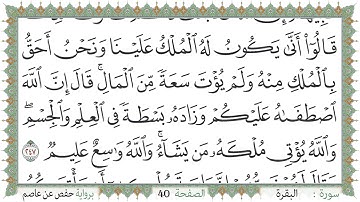 قَالُوٓا۟ أَنَّىٰ يَكُونُ لَهُ ٱلْمُلْكُ عَلَيْنَا وَنَحْنُ أَحَقُّ
بِٱلْمُلْكِ مِنْهُ وَلَمْ يُؤْتَ سَعَةً مِّنَ ٱلْمَالِ ۚ قَالَ إِنَّ ٱللَّهَ
ٱصْطَفَىٰهُ عَلَيْكُمْ وَزَادَهُۥ بَسْطَةً فِى ٱلْعِلْمِ وَٱلْجِسْمِ ۖ
وَٱللَّهُ يُؤْتِى مُلْكَهُۥ مَن يَشَآءُ ۚ وَٱللَّهُ وَٰسِعٌ عَلِيمٌ ٢٤٧
سورة : البقرة الصفحة 40 برواية حفص عن عاصم